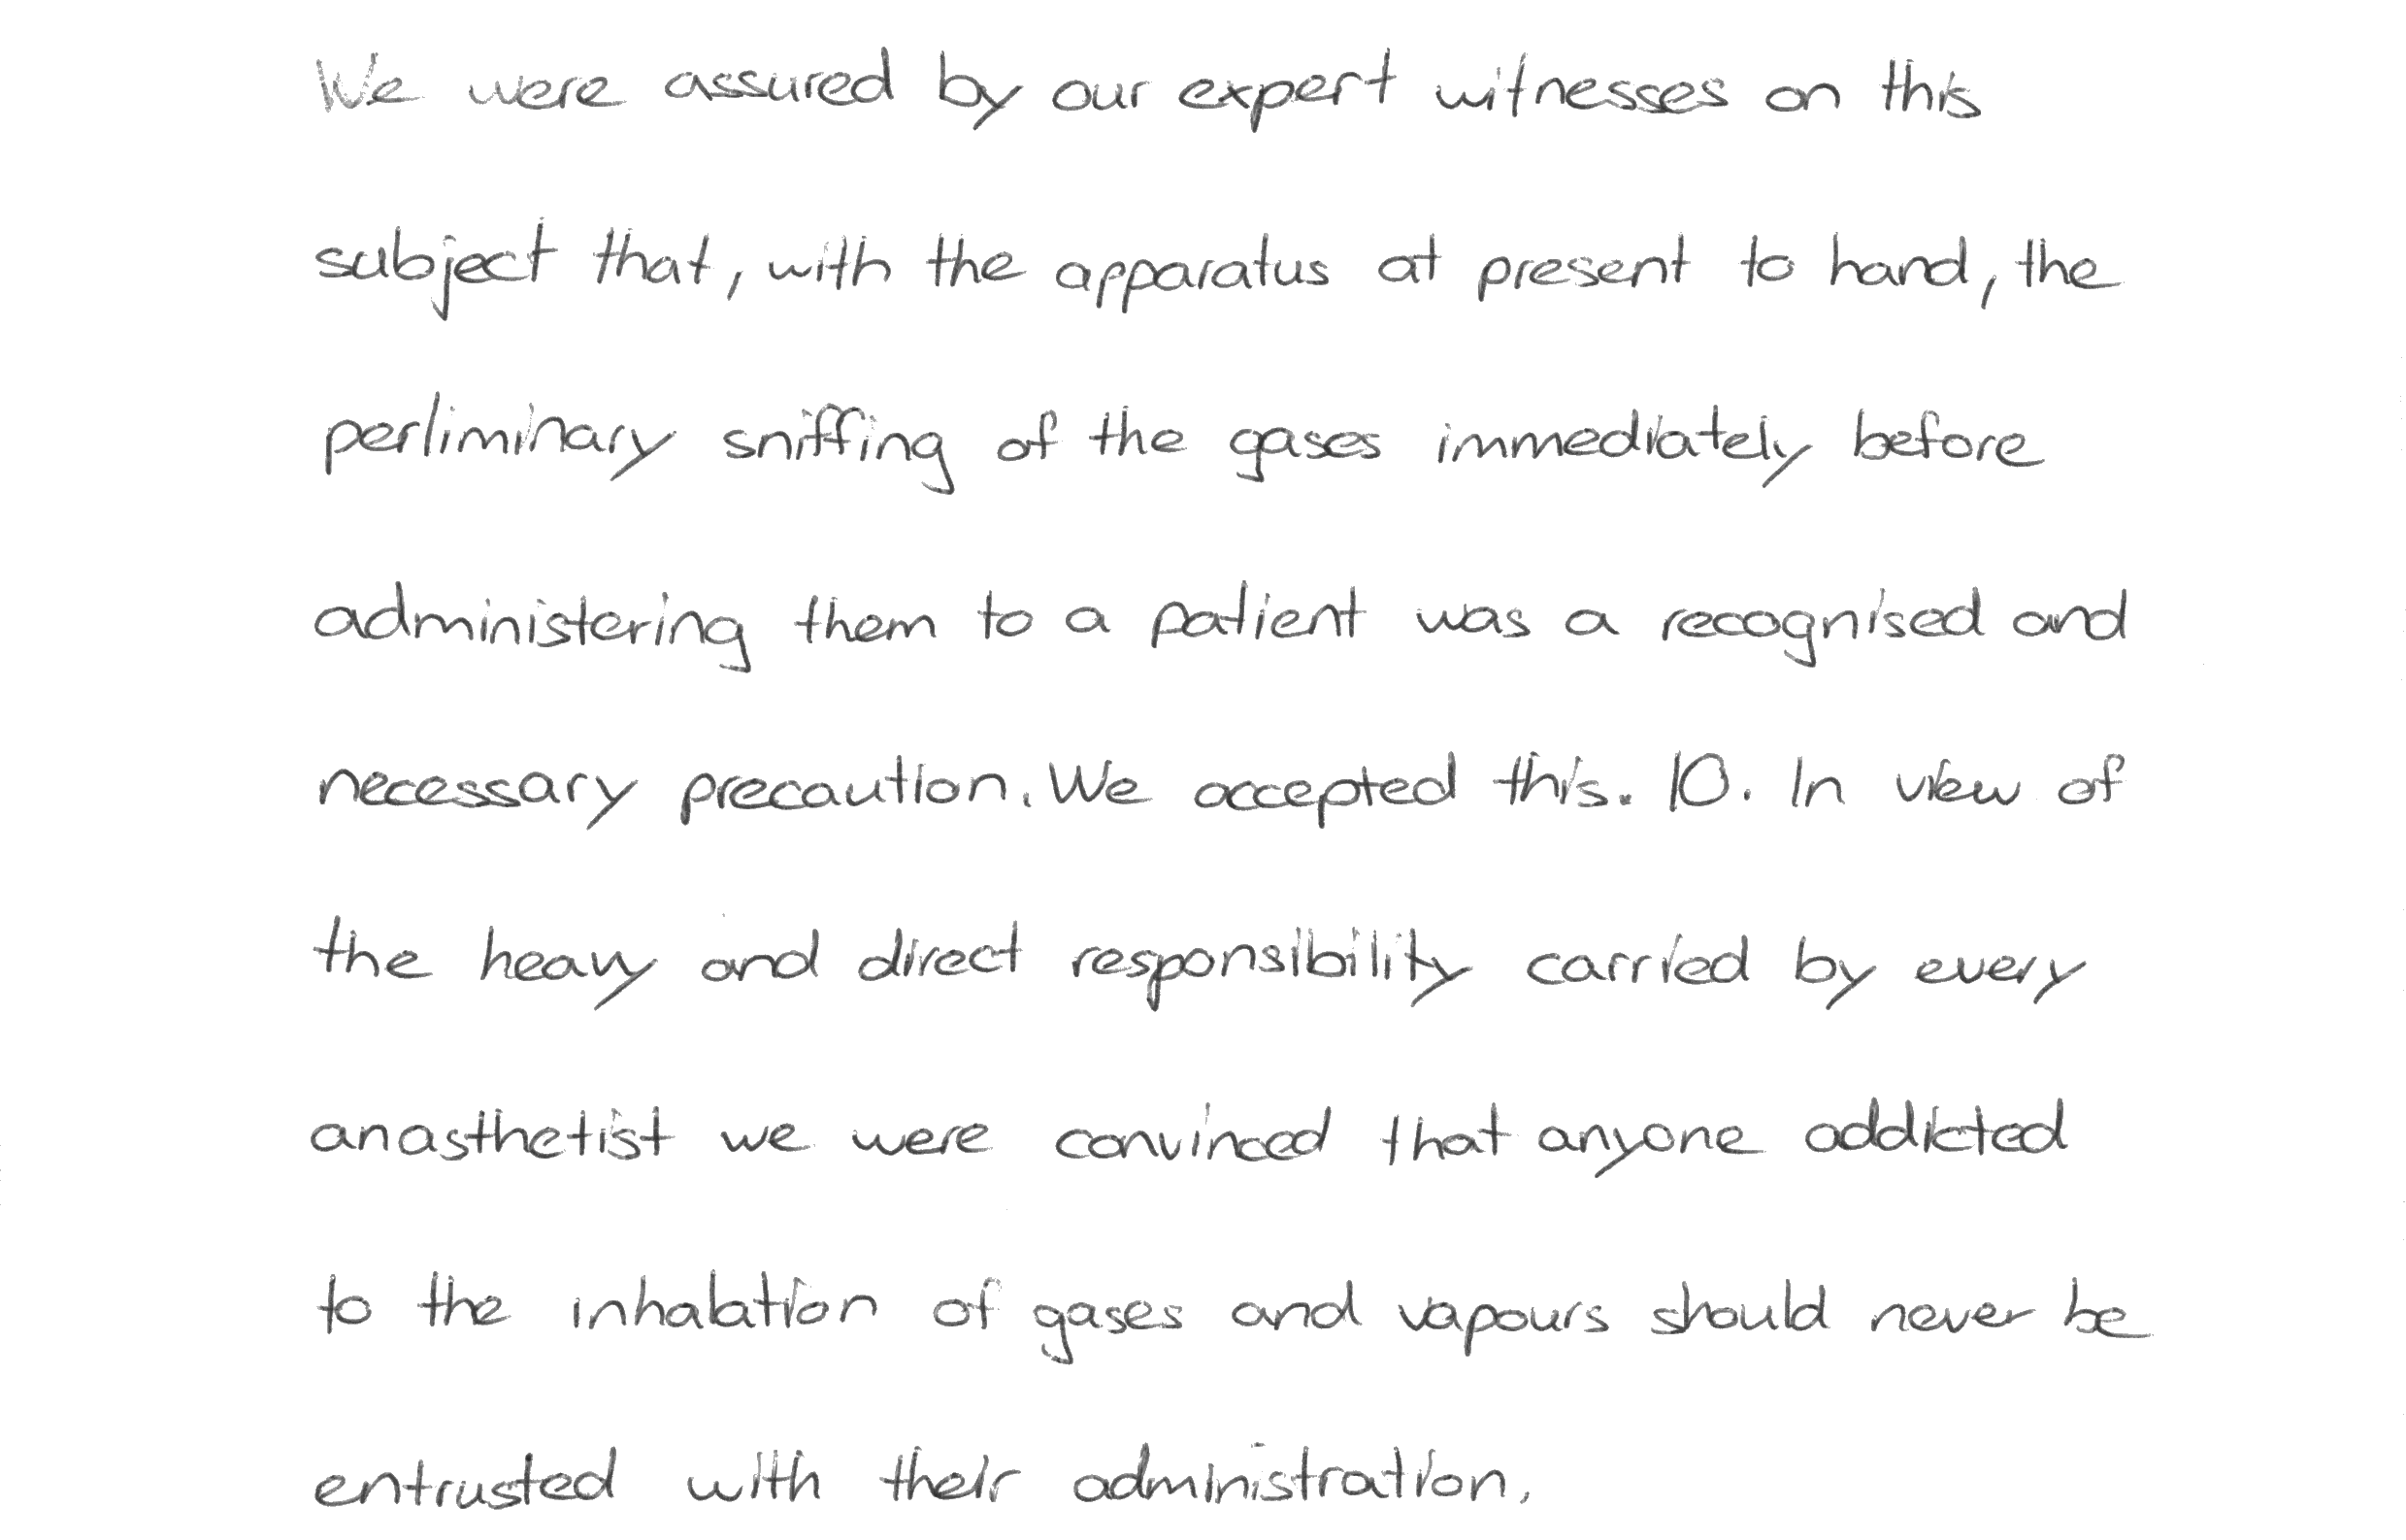 We were assured by our expert witnesses on this
subject that, with the apparatus at present to hand, the
perliminary sniffing of the gases immediately before
administering them to a patient was a recognised and
necessary precaution. We accepted this. 10. In view of
the heavy and direct responsibility carried by every
anasthetist we were convinced that anyone addicted
to the inhalation of gases and vapours should never be
entrusted with their administration.